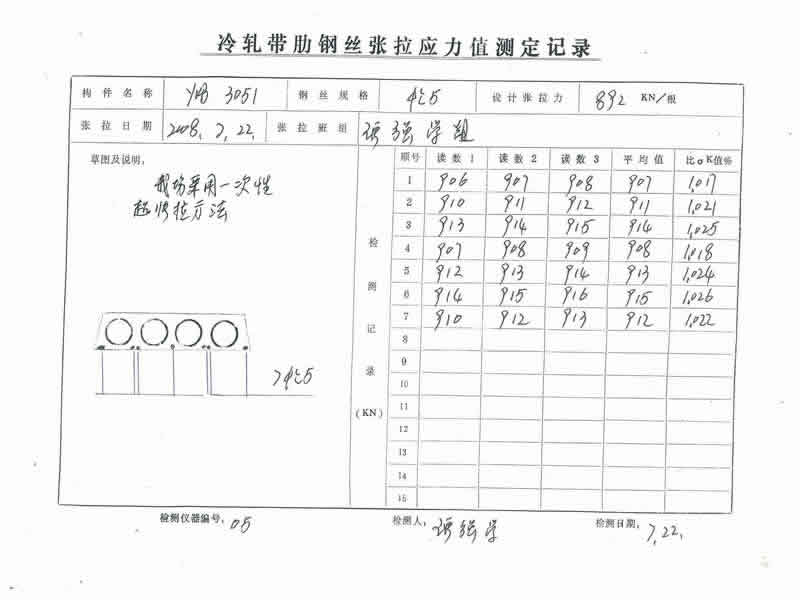 冷轧带肋钢丝张拉应力值测定记录
构件名称 YKB 3051 钢丝规格 设计张拉力 892 KN/根
张拉日期 2008. 7. 22. 张拉班组 强学组
草图及说明,
我场采用一次性
超张拉方法
顺号 读数1 读数2 读数3 平均值 比σK值%
1 906 907 908 907 1.017
2 910 911 912 911 1.021
3 913 914 915 914 1.025
4 907 908 909 908 1.018
5 912 913 914 913 1.024
6 914 915 916 915 1.026
7 910 912 913 912 1.022
8
9
10
11
12
13
14
15
检测记录(KN)
检测仪器编号, 05 检测人, 强学 检测日期, 7. 22.